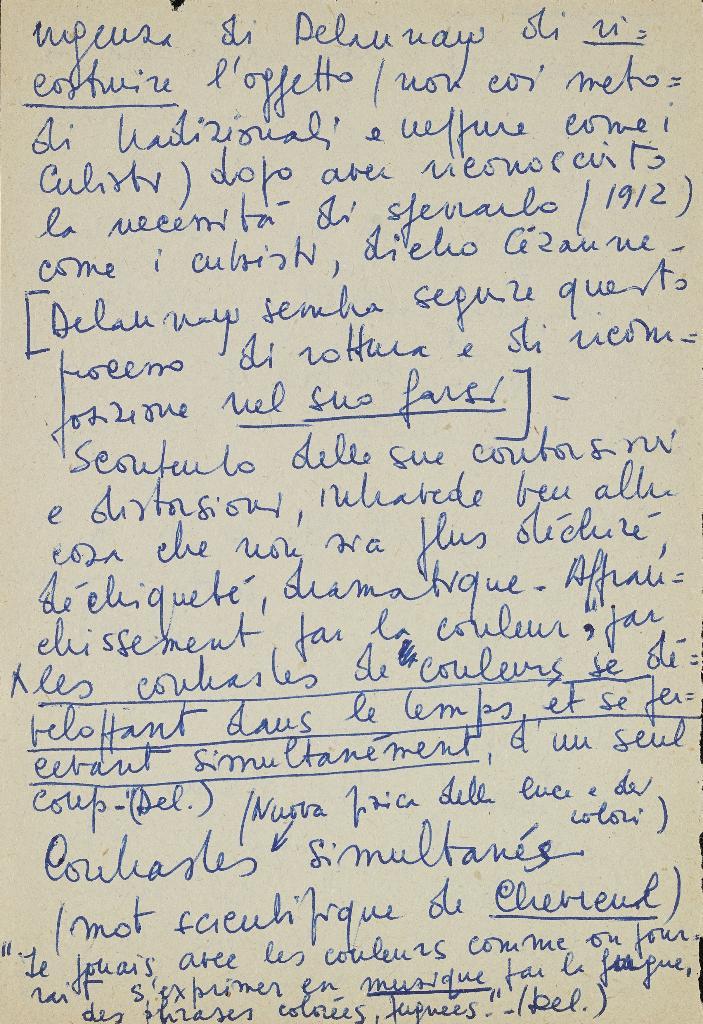 urgenza di Delaunay di ri=
costruire l'oggetto (non coi meto=
di tradizionali e neppure come i
Cubisti) dopo aver riconosciuto
la necessità di sfenarlo (1912)
come i cubisti, dietro Cézanne -
[Delaunay sembra seguire questo
processo di rottura e di ricom=
posizione nel suo farsi] -
Scontento delle sue contorsioni
e distorsioni, intravede ben altra
cosa che non sia plus déchiré,
déchiqueté, dramatique - Affran=
chissement par la couleur ", par
les contrastes de couleurs se dé=
veloppant dans le temps, et se per=
cevant simultanément, d'un seul
coup -"(Del.) (Nuova fisica della luce e dei
colori)
Contrastes simultanés
(mot scientifique de Chevreul)
"Je jouais avec les couleurs comme on pour-
rait s'exprimer en musique par la fugue,
des phrases colorées, fuguées." - (Del.)